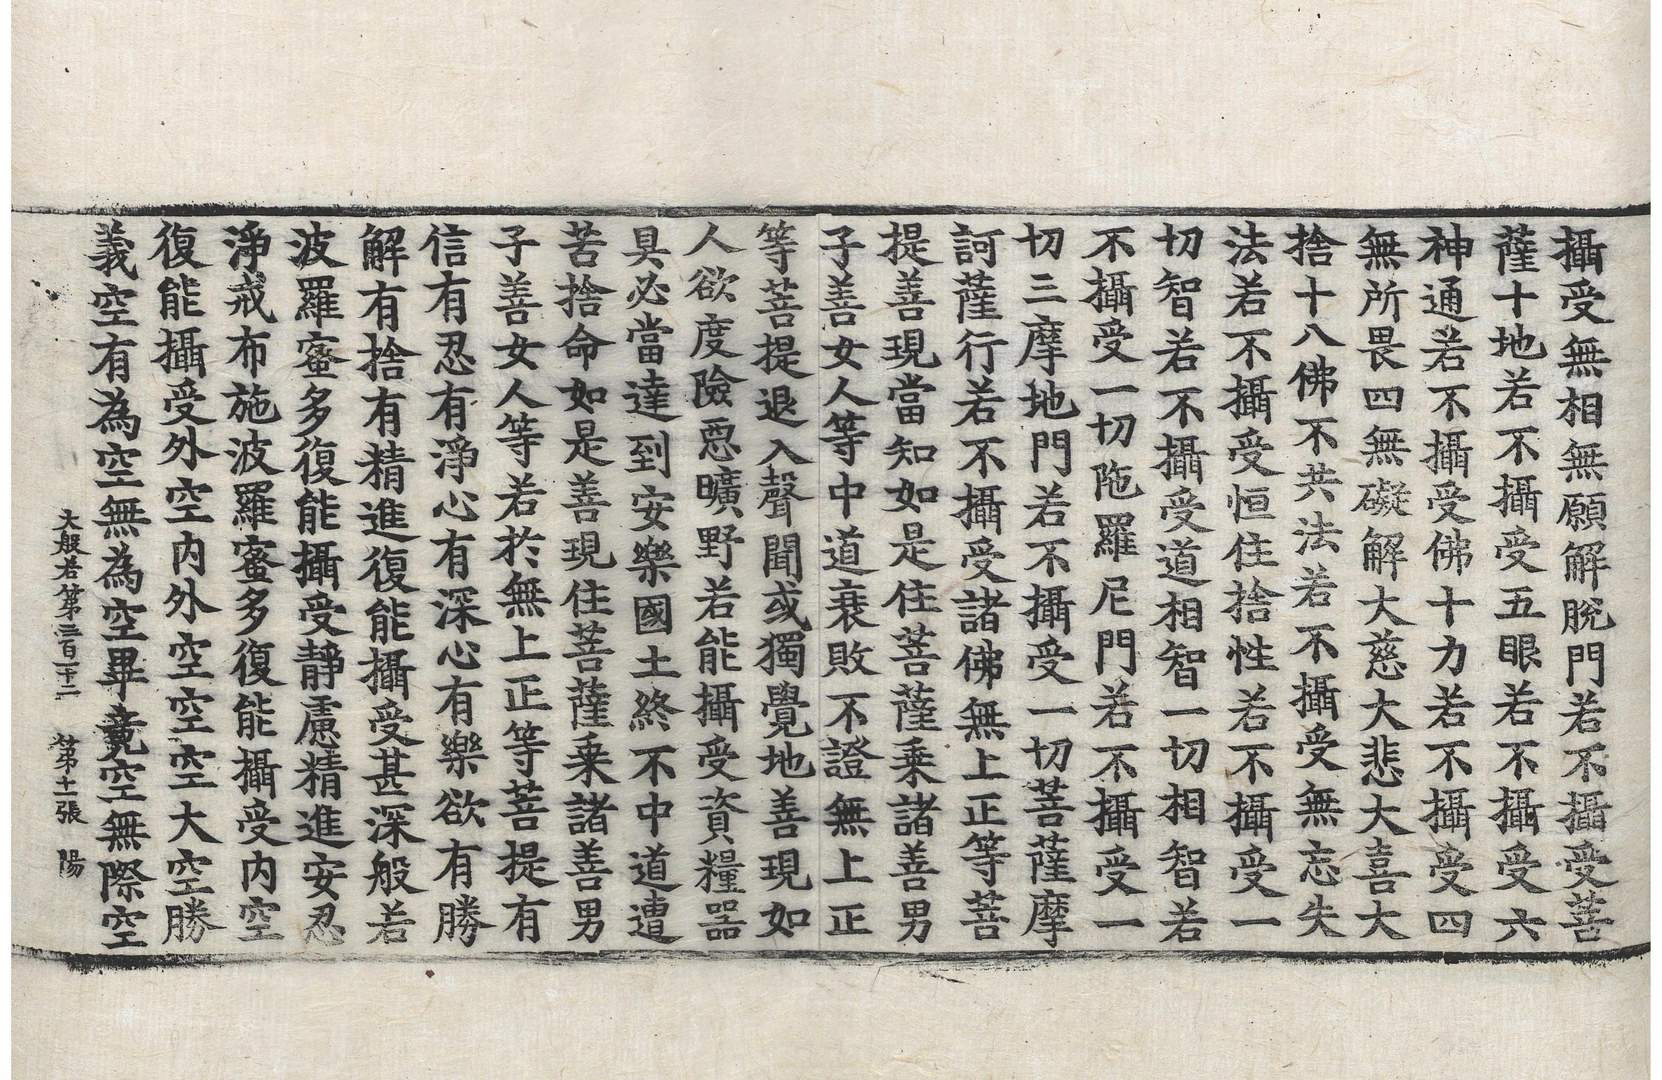 攝受無相無願解脫門若不攝受菩
薩十地若不攝受五眼若不攝受六
神通若不攝受佛十力若不攝受四
無所畏四無礙解大慈大悲大喜大
捨十八佛不共法若不攝受無忘失
法若不攝受恒住捨性若不攝受一
切智若不攝受道相智一切相智若
不攝受一切陁羅尼門若不攝受一
切三摩地門若不攝受一切菩薩摩
訶薩行若不攝受諸佛無上正等菩
提善現當知如是住菩薩乘諸善男
子善女人等中道衰敗不證無上正
等菩提退入聲聞或獨覺地善現如
人欲度險惡曠野若能攝受資糧器
具必當達到安樂國土終不中道遭
苦捨命如是善現住菩薩乘諸善男
子善女人等若於無上正等菩提有
信有忍有淨心有深心有樂欲有勝
解有捨有精進復能攝受甚深般若
波羅蜜多復能攝受靜慮精進安忍
淨戒布施波羅蜜多復能攝受內空
復能攝受外空內外空空空大空勝
義空有為空無為空畢竟空無際空
大般若第三百二十二 第十一張 陽